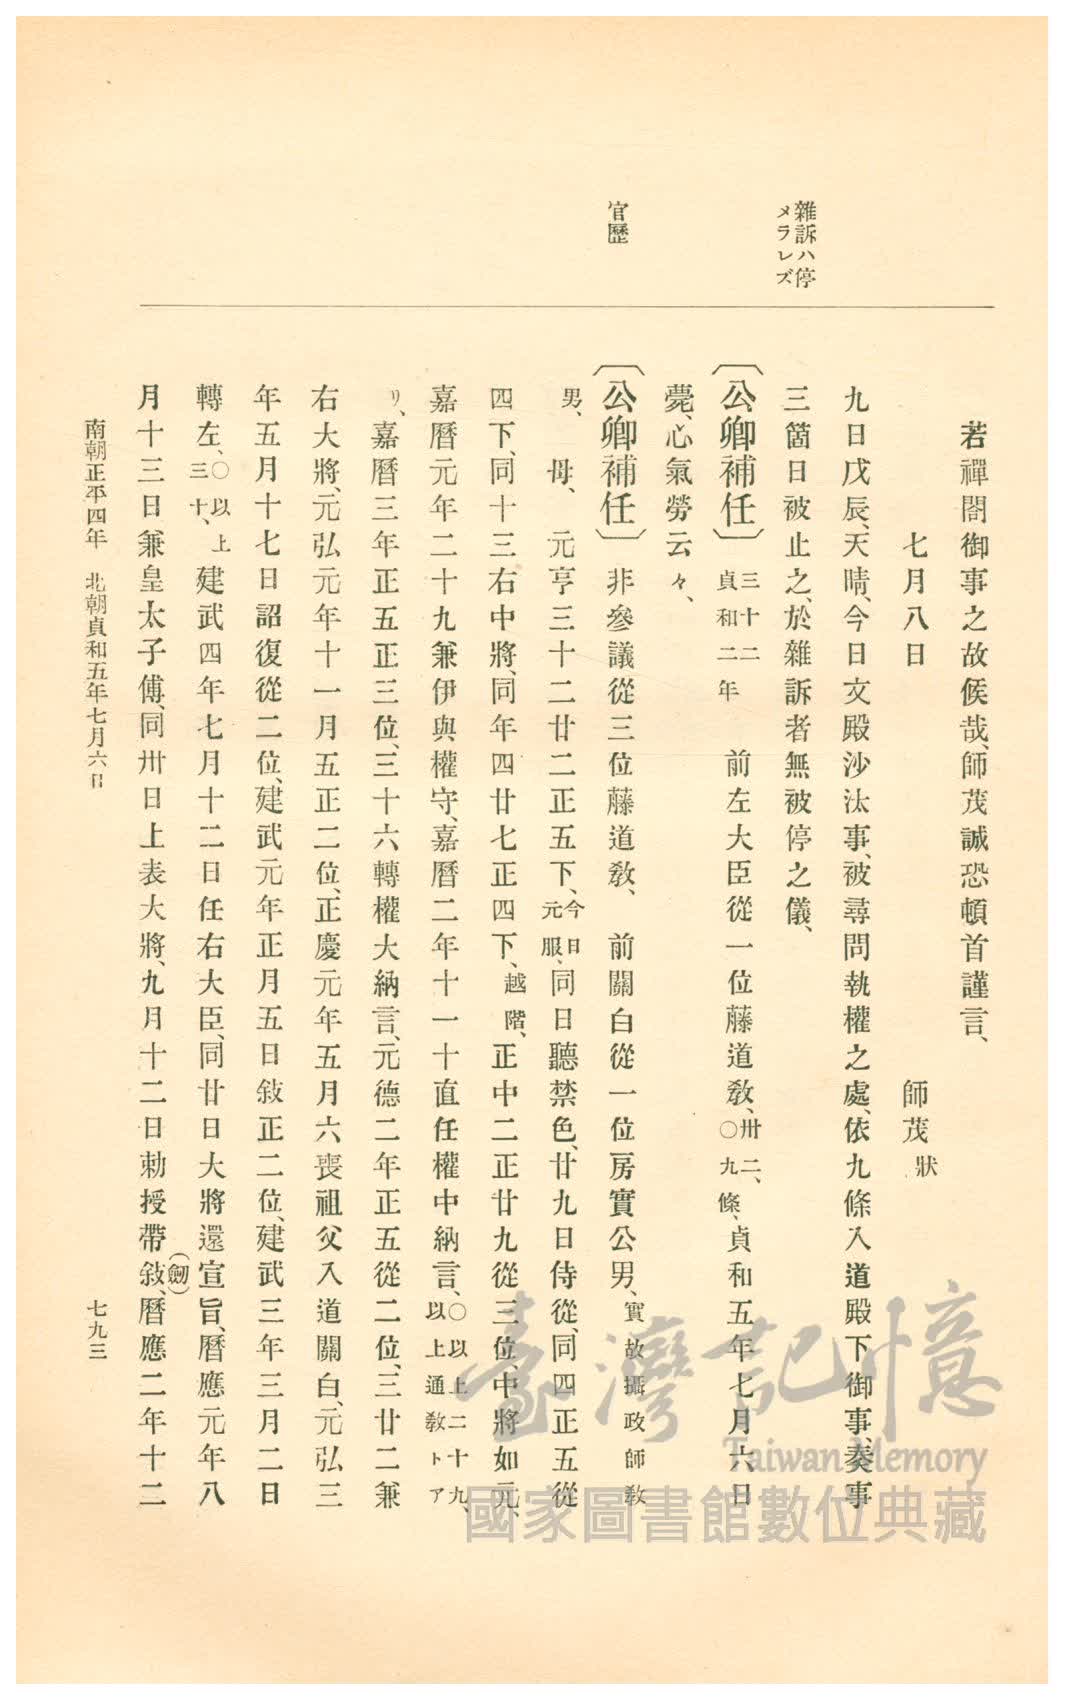 雜訴ハ停
メラレズ
官歷
若禪閤御事之故候哉、師茂誠恐頓首謹言、
七月八日　師茂狀
九日戊辰、天晴、今日文殿沙汰事、被尋問執權之處、依九條入道殿下御事、奏事
三箇日被止之、於雜訴者無被停之儀、
〔公卿補任〕三十二貞和二年　前左大臣從一位藤道敎、卅二、〇九條、貞和五年七月六日
薨、心氣勞云々、
〔公卿補任〕非參議從三位藤道敎、　前關白從一位房實公男、實故攝政師敎
男、　母、　元亨三十二廿二正五下、今日元服、同日聽禁色、廿九日侍從、同四正五從
四下、同十三右中將、同年四廿七正四下、越階、正中二正廿九從三位、中將如元、
嘉曆元年二十九兼伊與權守、嘉曆二年十一十直任權中納言、〇以上二十九、以上通敎トア
リ、嘉曆三年正五正三位、三十六轉權大納言、元德二年正五從二位、三廿二兼
右大將、元弘元年十一月五正二位、正慶元年五月六喪祖父入道關白、元弘三
年五月十七日詔復從二位、建武元年正月五日敍正二位、建武三年三月二日
轉左、〇以上三十、建武四年七月十二日任右大臣、同廿日大將還宣旨、曆應元年八
月十三日兼皇太子傅、同卅日上表大將、九月十二日勅授帶敍、(劒)曆應二年十二
南朝正平四年　北朝貞和五年七月六日
七九三
臺灣記憶
Taiwan Memory
國家圖書館數位典藏